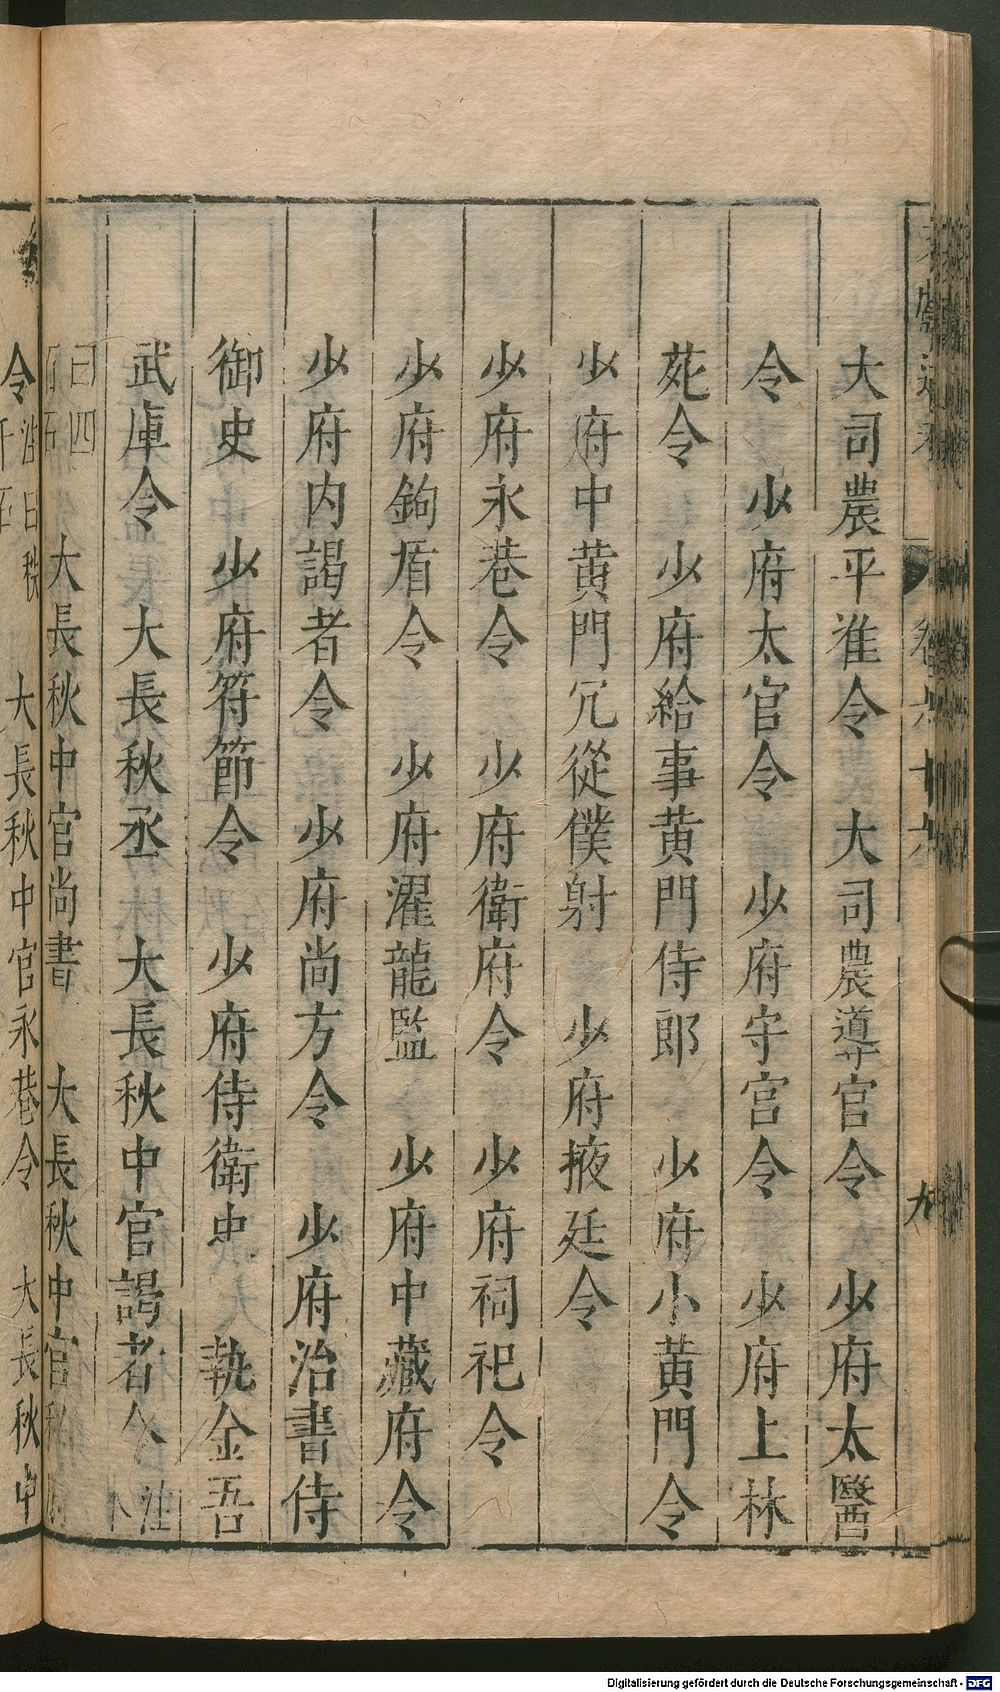 卷六十六
九
大司農平准令　大司農導官令　少府太醫
令　少府太官令　少府守官令　少府上林
苑令　少府給事黄門侍郎　少府小黄門令
少府中黄門冗從僕射　少府掖廷令
少府永巷令　少府衛府令　少府祠祀令
少府鉤盾令　少府濯龍監　少府中藏府令
少府内謁者令　少府尚方令　少府治書侍
御史　少府符節令　少府侍衛史　執金吾
武庫令　大長秋丞　大長秋中官謁者令 注
曰四
百石
大長秋中官尚書　大長秋中官
令 注曰秩
千石
大長秋中官永巷令　大長秋中
Digitalisierung gefördert durch die Deutsche Forschungsgemeinschaft - DFG